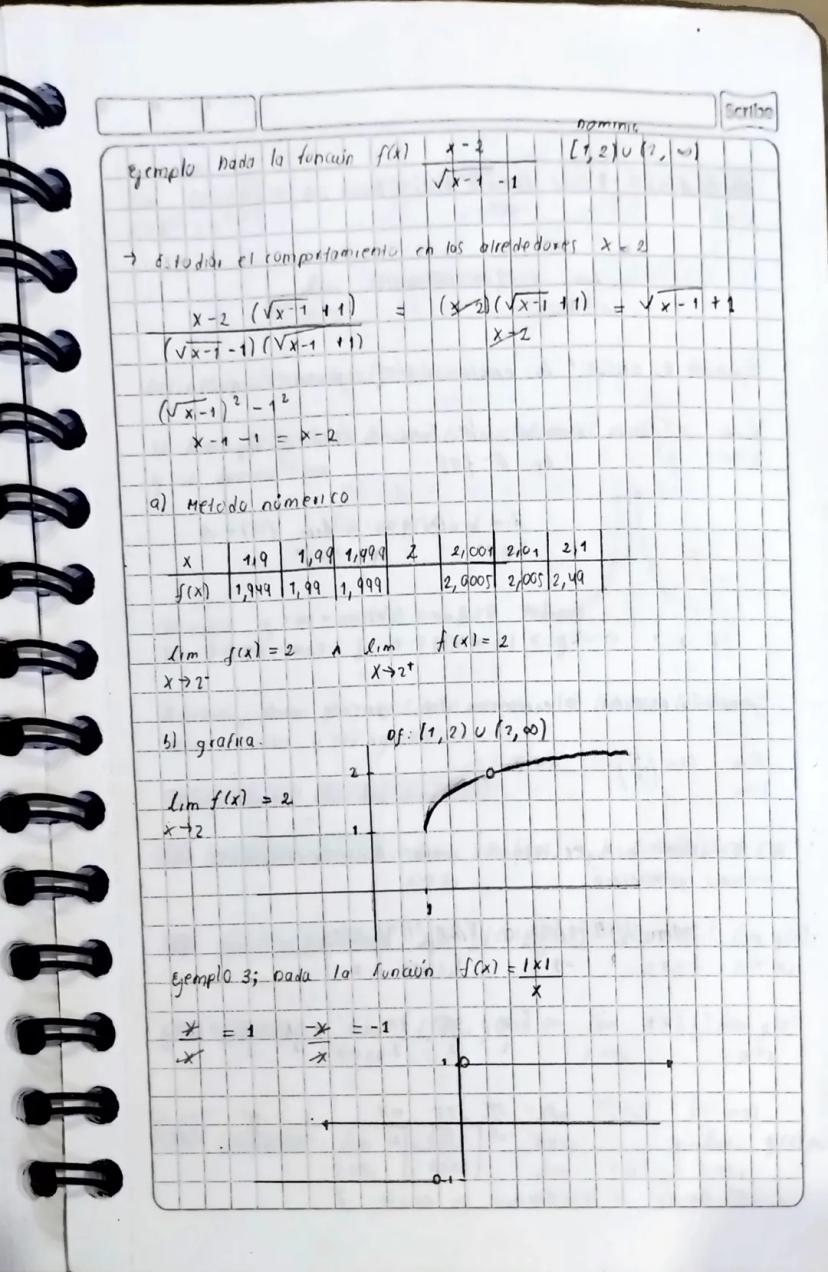 Scribe
Dominio
Ejemplo Dada la función f(x) x-2 / √x-1 -1 [1,2) ∪ (2, ∞)
→ Estudiar el comportamiento en los alrededores x = 2
x-2 (√x-1 +1) / (√x-1 -1)(√x-1 +1) = (x-2)(√x-1 +1) / x-2 = √x-1 +1
(√x-1)² - 1²
x-1-1 = x-2
a) Metodo númerico
x | 1,9 | 1,99 | 1,999 | 2 | 2,001 | 2,01 | 2,1
f(x) | 1,949 | 1,99 | 1,999 | | 2,0005 | 2,005 | 2,49
lim f(x) = 2 ∧ lim f(x) = 2
x→2⁻ x→2⁺
b) grafica. Df: [1,2) ∪ (2,∞)
2
lim f(x) = 2
x→2
1
1
Ejemplo 3; Dada la función f(x) = |x| / x
x / x = 1 -x / x = -1
1
-1